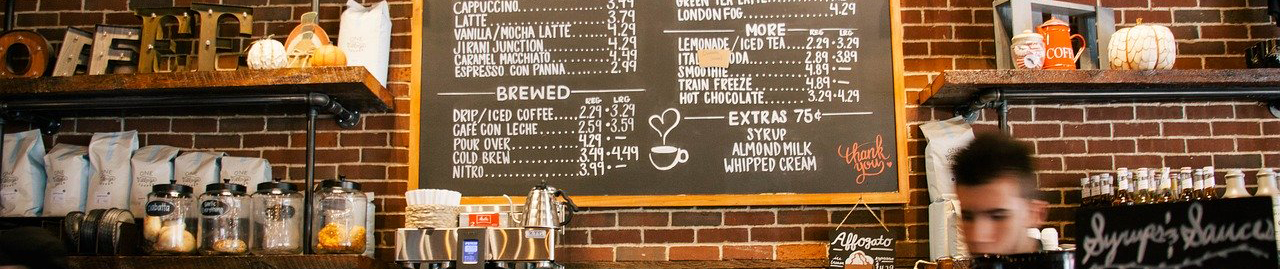 COFFEE
CAPPUCCINO......3.49
LATTE...........3.79
VANILLA/MOCHA LATTE......4.29
JIRANI JUNCTION......4.29
CARAMEL MACCHIATO......4.29
ESPRESSO CON PANNA...2.99
BREWED
REG LRG
DRIP/ICED COFFEE....2.29•3.29
CAFÉ CON LECHE.....2.59•3.59
POUR OVER......4.29•—
COLD BREW.......3.49•4.49
NITRO...........3.99•—
LONDON FOG........4.29
MORE REG LRG
LEMONADE/ICED TEA...2.29•3.29
ITAL ODA......2.89•3.89
SMOOTHIE........4.89•—
TRAIN FREEZE.....4.89•—
HOT CHOCOLATE......3.29•4.29
EXTRAS 75¢
SYRUP
ALMOND MILK
WHIPPED CREAM
thank you
COFF
Affogato
Syrups & Sauces